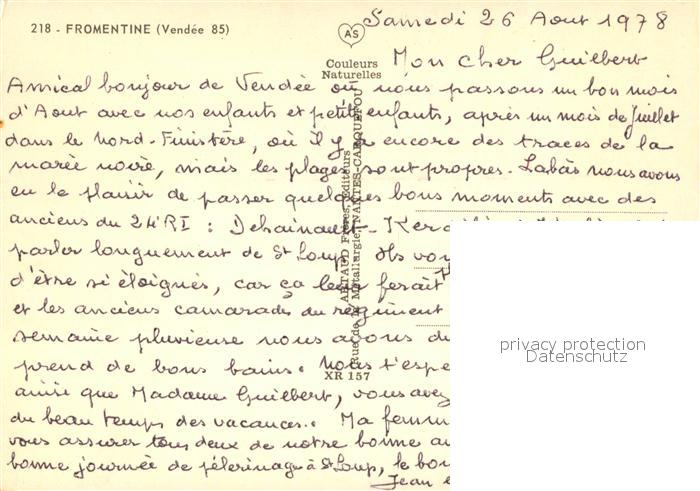 218 - FROMENTINE (Vendée 85)
AS
Couleurs
Naturelles
ARTAUD Frères, Editeurs
Rue de la Métallurgie, NANTES-CARQUEFOU
XR 157
Samedi 26 Aout 1978
Mon cher Guilbert
Amical bonjour de Vendée où nous passons un bon mois
d'Aout avec nos enfants et petits enfants, après un mois de Juillet
dans le Nord-Finistère, où il y a encore des traces de la
marée noire, mais les plages sont propres. Labàs nous avons
eu le plaisir de passer quelques bons moments avec des
anciens du 24 RI :
parler longuement de St Loup. Ils
d'être si éloignés, car ça leur ferait
et les anciens camarades du régiment
semaine pluvieuse nous avons du
prend de bons bains. Nous t'espé
ainsi que Madame Guilbert, vous avez
du beau temps des vacances. Ma femm
vous assurer tous deux de notre bonne a
bonne journée de pélerinage à St Loup, le bon
Jean
privacy protection
Datenschutz